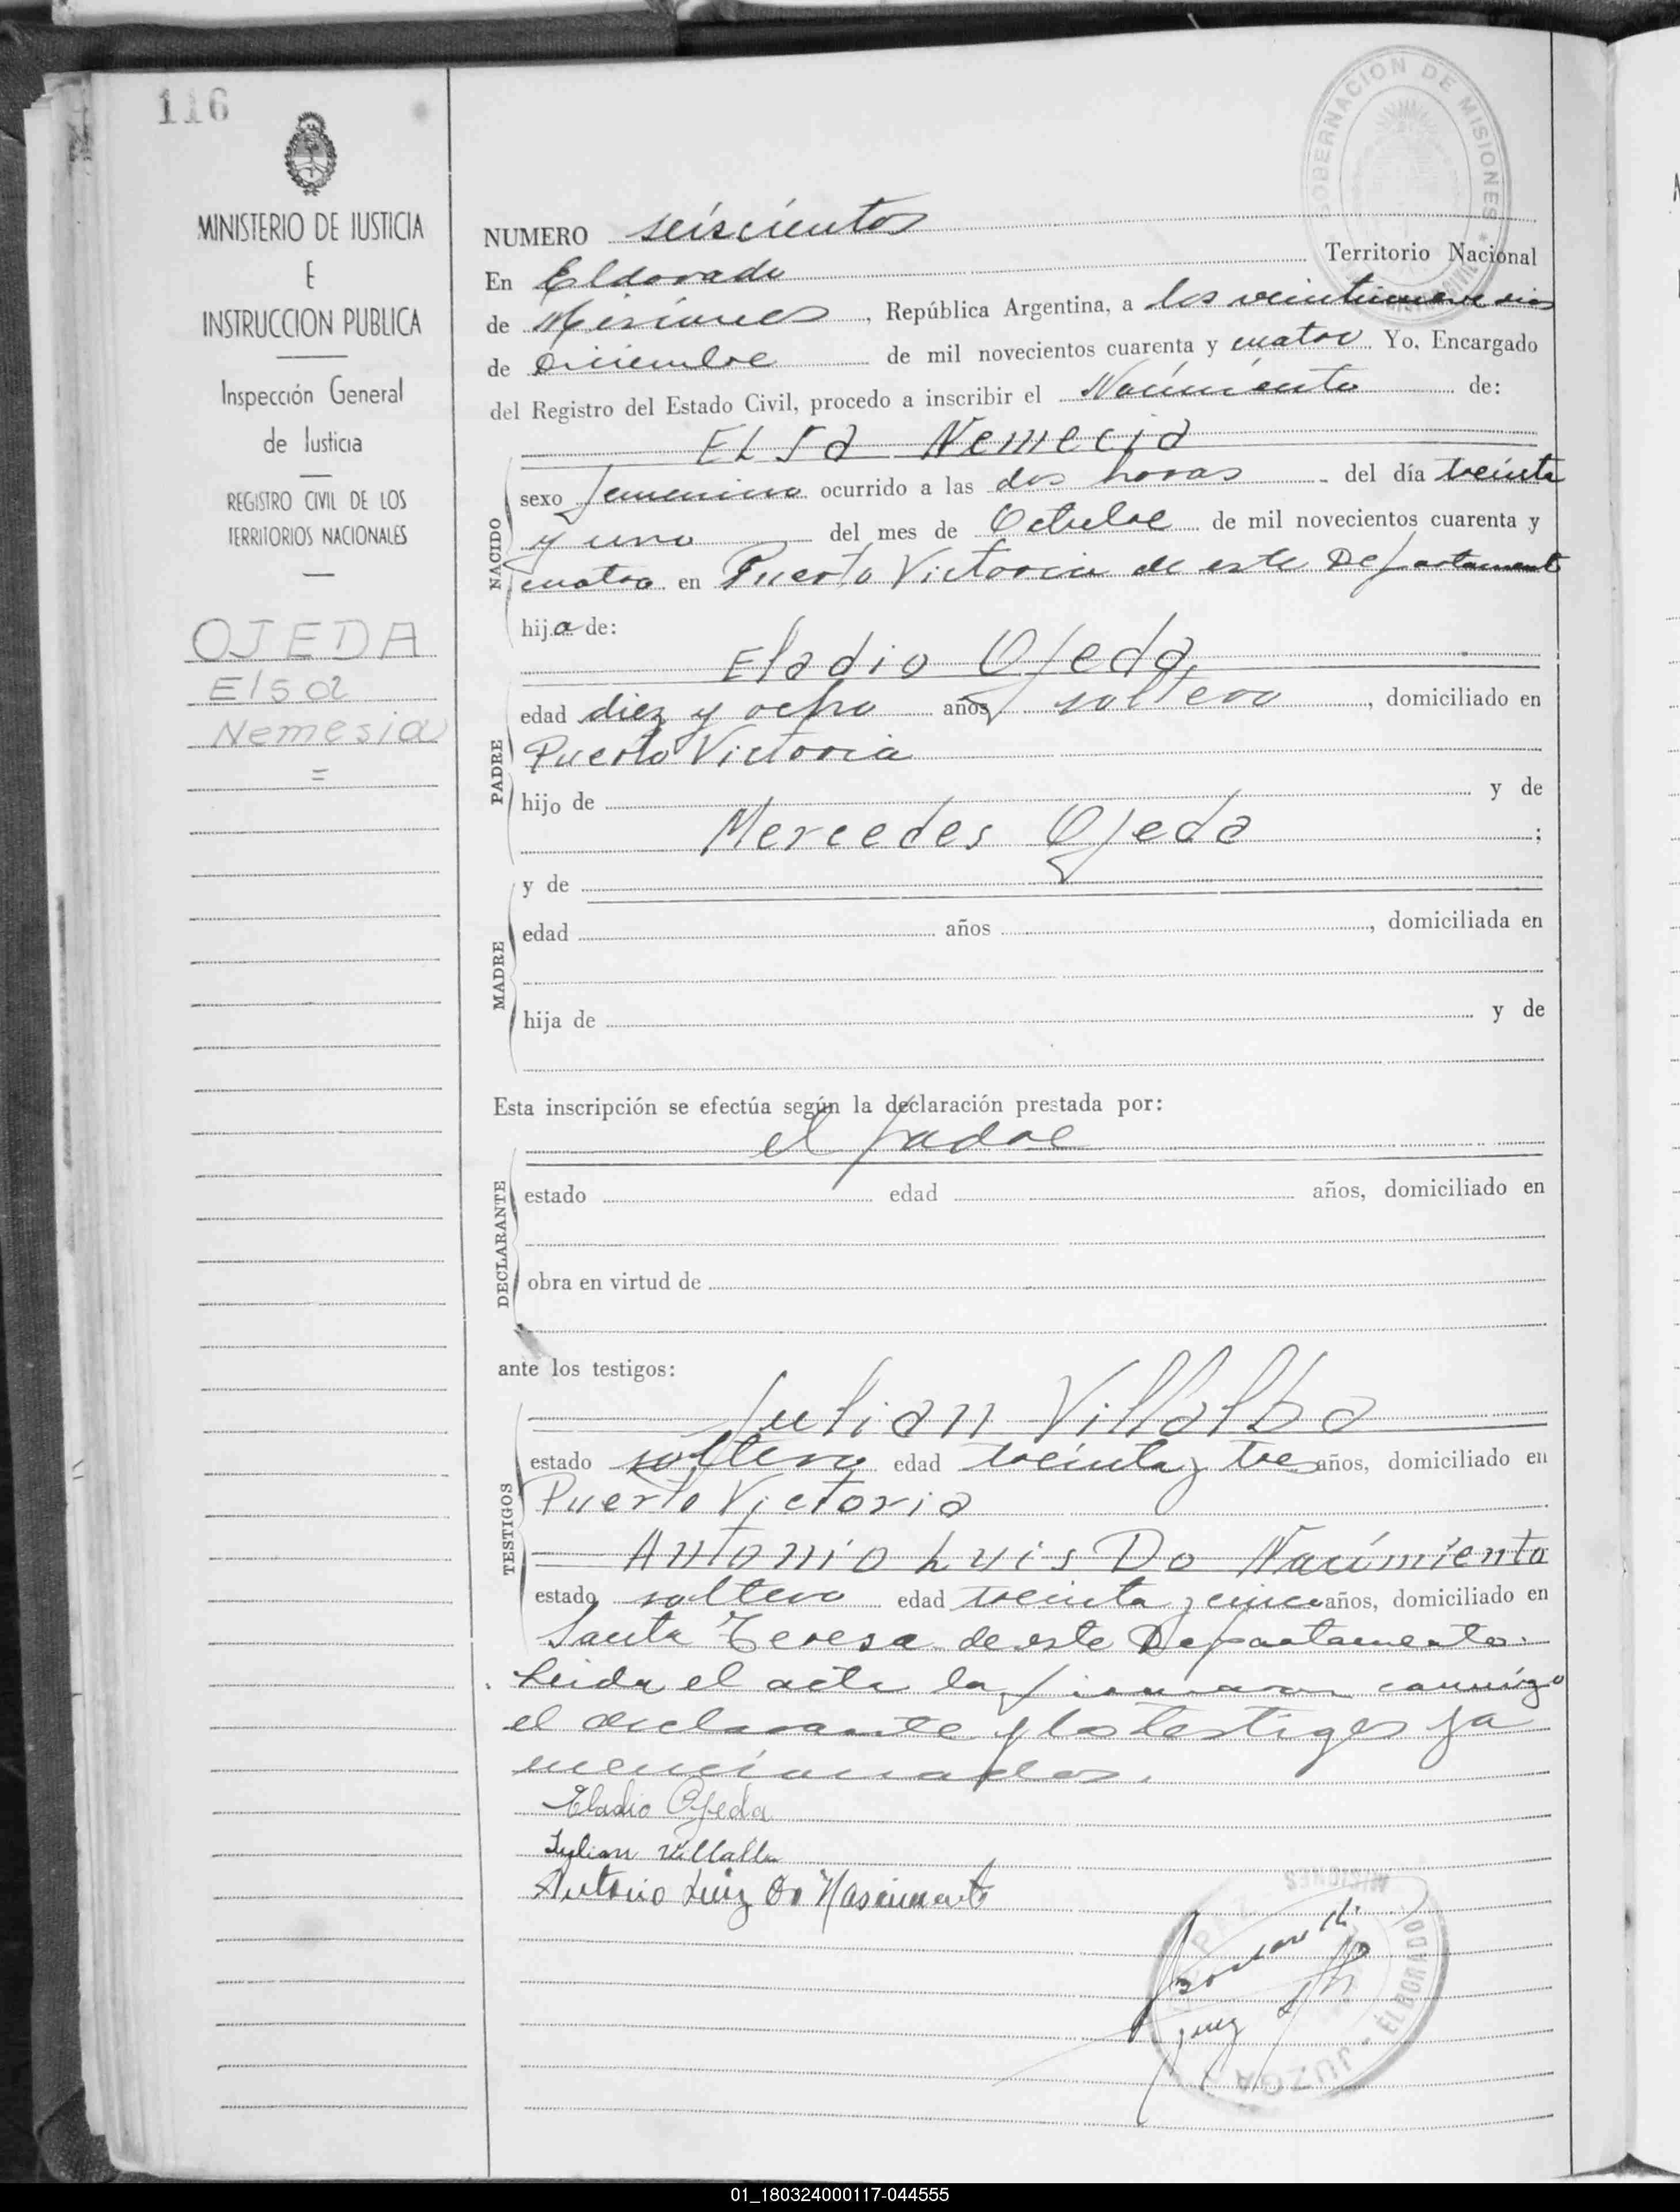 116
MINISTERIO DE JUSTICIA
E
INSTRUCCION PUBLICA
Inspección General
de Justicia
REGISTRO CIVIL DE LOS
TERRITORIOS NACIONALES
OJEDA
Elsa
Nemesia
=
GOBERNACION DE MISIONES
NUMERO seiscientos
En Eldorado Territorio Nacional
de Misiones, República Argentina, a los veintinueve dias
de Diciembre de mil novecientos cuarenta y cuatro Yo, Encargado
del Registro del Estado Civil, procedo a inscribir el Nacimiento de:
Elsa Nemecia
NACIDO
sexo femenino ocurrido a las dos horas del día treinta
y uno del mes de Octubre de mil novecientos cuarenta y
cuatro en Puerto Victoria de este Departament
hija de:
Eladio Ojeda,
PADRE
edad diez y ocho años soltero, domiciliado en
Puerto Victoria
hijo de y de
Mercedes Ojeda ;
MADRE
y de
edad años , domiciliada en
hija de y de
Esta inscripción se efectúa según la declaración prestada por:
el padre
DECLARANTE
estado edad años, domiciliado en
obra en virtud de
ante los testigos:
Julian Villalba
TESTIGOS
estado soltero edad treinta y tres años, domiciliado en
Puerto Victoria
Antonio Luis Do Nacimiento
estado soltero edad treinta y cinco años, domiciliado en
Santa Teresa de este Departamento.
Leida el acta la firmaron conmigo
el declarante y los testigos ya
mencionados.
Eladio Ojeda
Julian Villalba
Antonio Luiz Do Nascimento
MISIONES
ELDORADO
JUZGA
Juez
01_180324000117-044555